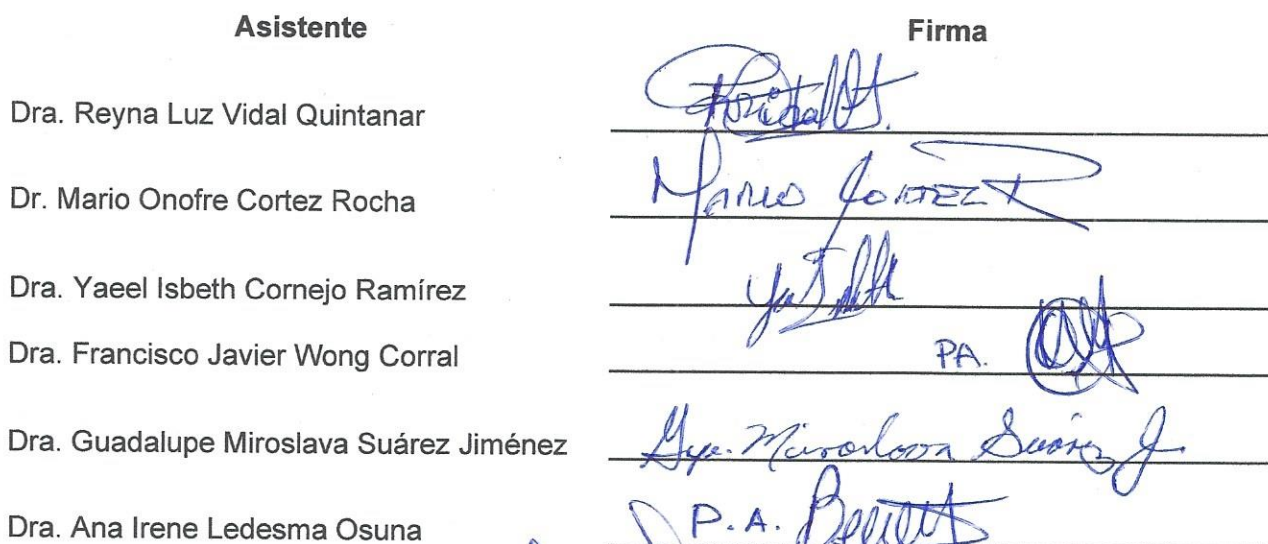 Asistente Firma
Dra. Reyna Luz Vidal Quintanar
Dr. Mario Onofre Cortez Rocha MARIO CORTEZ R
Dra. Yaeel Isbeth Cornejo Ramírez
Dra. Francisco Javier Wong Corral PA.
Dra. Guadalupe Miroslava Suárez Jiménez Gpe. Miroslava Suárez J.
Dra. Ana Irene Ledesma Osuna P.A.